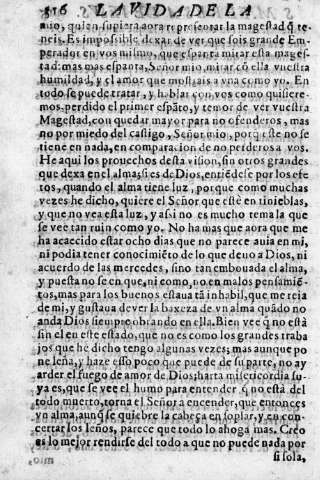 416 LA VIDA DE LA
mio, quien supiera aora representar la magestad q̃ te-
neis. Es impossible dexar de ver que sois grande Em-
perador en vos mismo, que espanta mirar esta mages-
tad: mas mas espanta, Señor mio, mirar cõ ella vuestra
humildad, y el amor que mostrais a vna como yo. En
todo se puede tratar, y hablar con vos como quisiere-
mos, perdido el primer espãto, y temor de ver vuestra
Magestad, con quedar mayor para no ofenderos, mas
no por miedo del castigo, Señor mio, porq̃ este no se
tiene en nada, en comparacion de no perderos a vos.
He aqui los prouechos desta vision, sin otros grandes
que dexa en el alma: si es de Dios, entiẽdese por los efe-
tos, quando el alma tiene luz, porque como muchas
vezes he dicho, quiere el Señor que estè en tinieblas,
y que no vea esta luz, y assi no es mucho tema la que
se vee tan ruin como yo. No ha mas que aora que me
ha acaecido estar ocho dias que no parece auia en mi,
ni podia tener conocimiẽto de lo que deuo a Dios, ni
acuerdo de las mercedes, sino tan embouada el alma,
y puesta no se en que, ni como, no en malos pensamiẽ-
tos, mas para los buenos estaua tã inhabil, que me reia
de mi, y gustaua de ver la baxeza de vn alma quãdo no
anda Dios siempre obrando en ella. Bien vee q̃ no està
sin el en este estado, que no es como los grandes traba
jos que he dicho tengo algunas vezes; mas aunque po
ne leña, y haze esso poco que puede de su parte, no ay
arder el fuego de amor de Dios: harta misericordia su-
ya es, que se vee el humo para entender q̃ no està del
todo muerto, torna el Señor a encender, que entonces
vn alma, aunq̃ se quiebre la cabeça en soplar, y en con-
certar los leños, parece que todo lo ahoga mas. Creo
es lo mejor rendirse del todo a que no puede nada por
si sola,